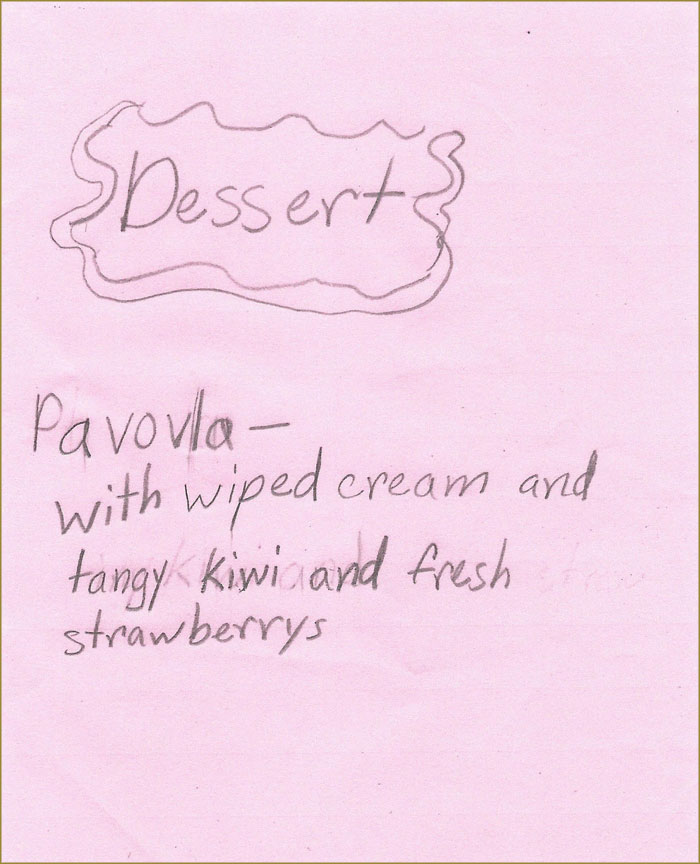 Dessert
Pavovla -
with wiped cream and
tangy kiwi and fresh
strawberrys